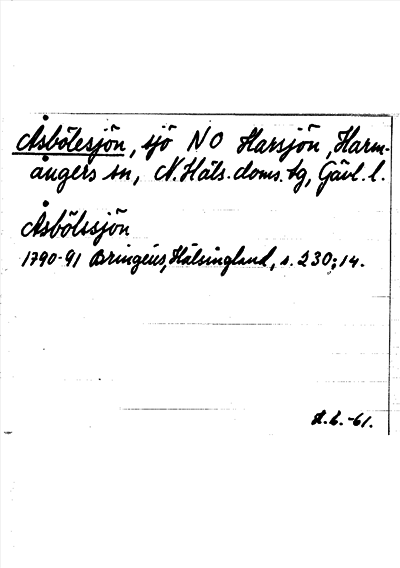 Åsbölesjön, sjö NO Harsjön, Harm-
ångers sn, N. Häls. doms. tg, Gävl. l.
Åsbölssjön
1790-91 Bringéus, Hälsingland, s. 230; 14.
-61.